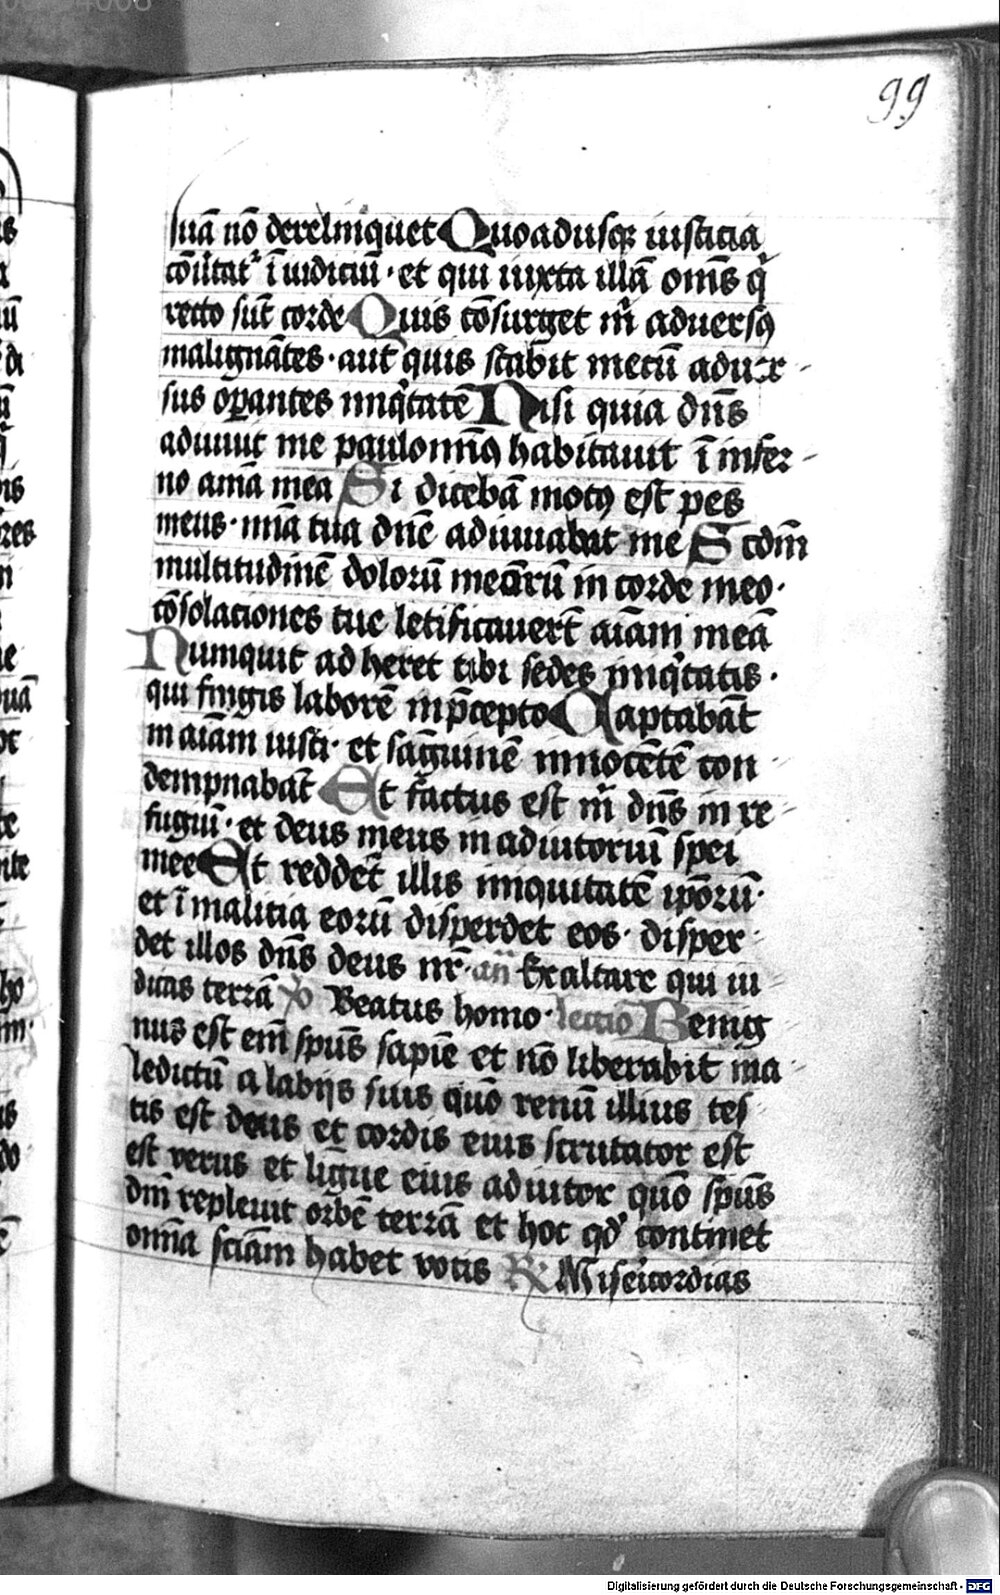 99
suā nō derelinquet Quoadusqꝫ iusticia
cōu͛tat᷑ ī iudiciū · et qui iuxta illā oms̄ qͥ
recto sūt corde Quis cōsurget m̄ aduersꝯ
malignātes · aut quis stabit mecū aduer-
sus oꝑantes iniqͥtatē Nisi quia dn̄s
adiuuit me paulominꝯ habitauit ī infer-
no aīa mea Si dicebā motꝯ est pes
meus · mīa tua dn̄e adiuuabat me Scdm̄
multitudinē dolorū meoꝝ in corde meo ·
cōsolaciones tue letificauer̄t aīam meā
Numquit adheret tibi sedes iniqͥtatis ·
qui fingis laborē in p̄cepto Captabāt
in aīam iusti · et sāguinē innocētē con-
dempnabāt Et fact͛us est m̄ dn̄s in re-
fugiū · et deus meus in adiutoriū spei
mee Et reddet illis iniquitatē ip̄orū ·
et ī malitia eorū disperdet eos · disper-
det illos dn̄s deus nr̄ · an̄ Exaltare qui iu-
dicas terrā ps Beatus homo · lectio Benig-
nus est em̄ sp̄us sapīe et nō liberabit ma-
ledictū a labijs suis quō renū illius tes-
tis est deus et cordis eius scrutator est
est verus et ligue eius aduitor quō sp̄us
dm̄ repleuit orbē terrā et hoc qd̓ continet
om̄ia sciam habet votis ℟ Misericordias
Digitalisierung gefördert durch die Deutsche Forschungsgemeinschaft - DFG